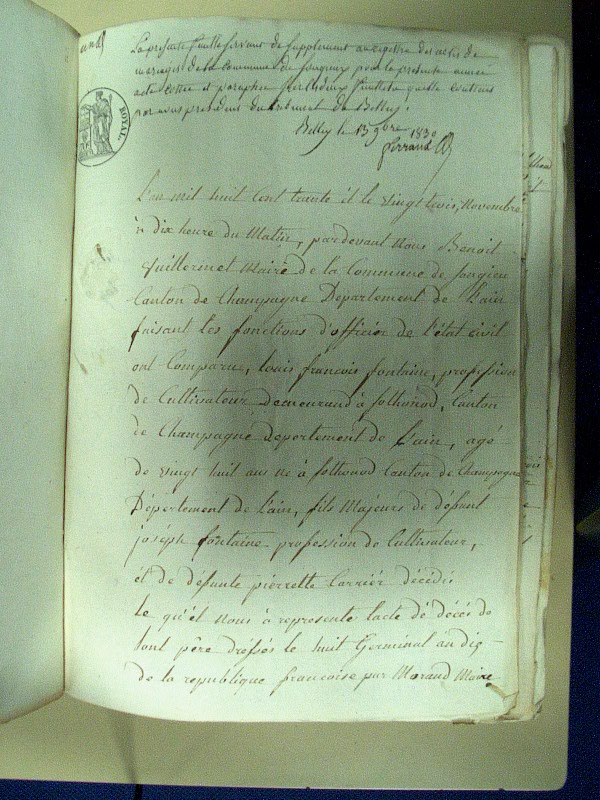 La presente feuille servant de supplement au registre des actes de
mariages de la commune de songieu pour la presente année
a été cottée et paraphée par
par nous president du tribunal de Belley.
Belley le 15 9bre 1830
ROYAL.
L'an mil huit Cent trente èt le vingt trois, Novembre
à dix heure du Matin, pardevant Nous Benoit
Guillerinet Maire de la Commune de songieu
Canton de Champagne Département de L'ain
faisant les fonctions d'officier de l'état civil
ont Comparu, louis francois fontaine, profession
de Cultivateur demeurand à fothonod, Canton
de Champagne département de l'ain, agé
de vingt huit ans né à fothonod Canton de Champagne
Département de L'ain, fils Majeurs de défunt
joséph fontaine profession de Cultivateur,
ét de défunte pierrette Carrier décédés
le qu'èl nous à represente lacte dé décés de
sont père dréssés le huit Germinal an dix
de la republique francoise par Morand Maire